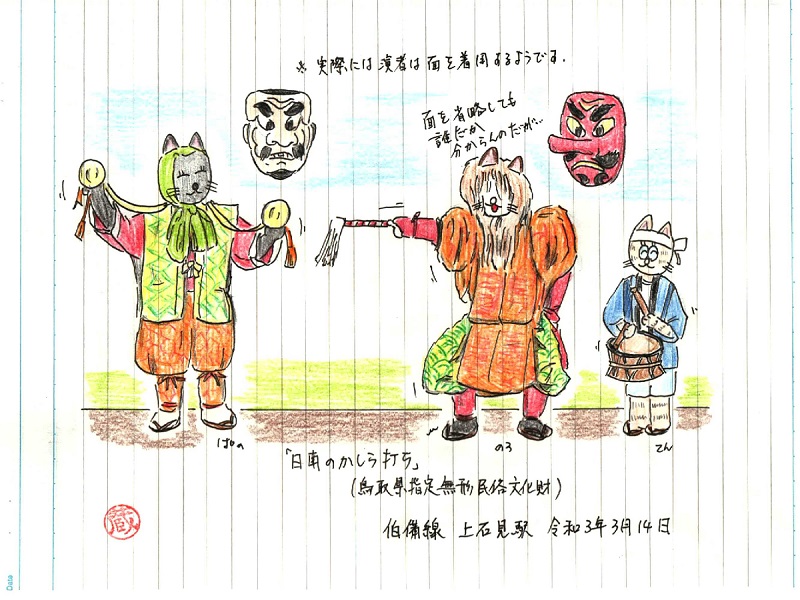 ※ 実際には演者は面を着用するようです.
面を省略しても
誰だか
分からんのだが…
ぱの
のろ
てん
「日南のかしら打ち」
(鳥取県指定無形民俗文化財)
伯備線 上石見駅 令和3年3月14日
蔵
Data